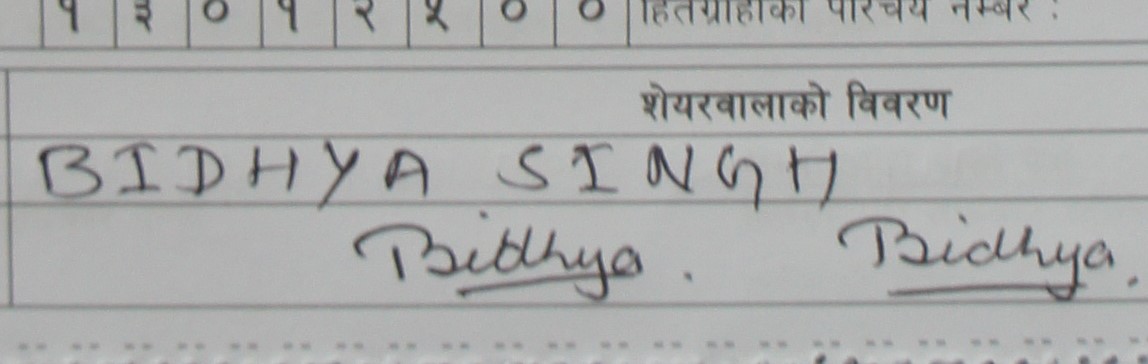 १ ३ ० १ २ ५ ० ० हितग्राहीको परिचय नम्बर :
शेयरवालाको विवरण
BIDHYA SINGH
Bidhya. Bidhya.